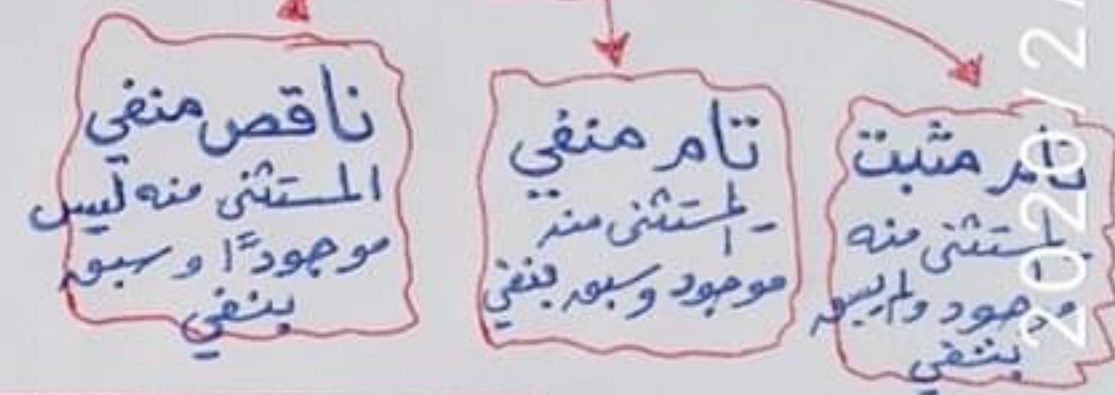 تام مثبت
المستثنى منه
موجود ولم يسبق
بنفي
تام منفي
المستثنى منه
موجود وسبق بنفي
ناقص منفي
المستثنى منه ليس
موجودًا وسبق
بنفي
2020/2/